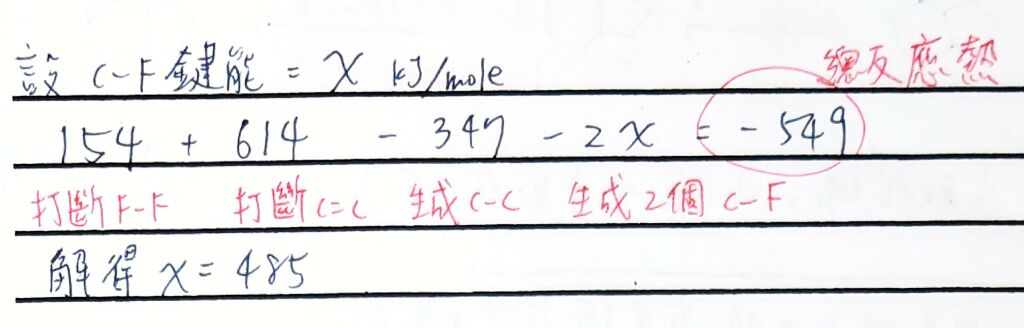 設 C-F 鍵能 = x kJ/mole 總反應熱
154 + 614 - 347 - 2x = -549
打斷 F-F 打斷 C=C 生成 C-C 生成 2個 C-F
解得 x = 485